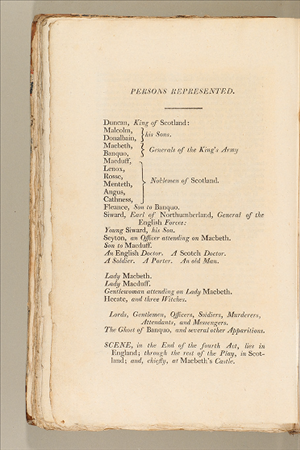 PERSONS REPRESENTED.
Duncan, King of Scotland:
Malcolm,
Donalbain, } his Sons.
Macbeth,
Banquo, } Generals of the King's Army
Macduff,
Lenox,
Rosse,
Menteth,
Angus,
Cathness, } Noblemen of Scotland.
Fleance, Son to Banquo.
Siward, Earl of Northumberland, General of the
English Forces:
Young Siward, his Son.
Seyton, an Officer attending on Macbeth.
Son to Macduff.
An English Doctor. A Scotch Doctor.
A Soldier. A Porter. An old Man.
Lady Macbeth.
Lady Macduff.
Gentlewoman attending on Lady Macbeth.
Hecate, and three Witches.
Lords, Gentlemen, Officers, Soldiers, Murderers,
Attendants, and Messengers.
The Ghost of Banquo, and several other Apparitions.
SCENE, in the End of the fourth Act, lies in
England; through the rest of the Play, in Scot-
land; and, chiefly, at Macbeth's Castle.